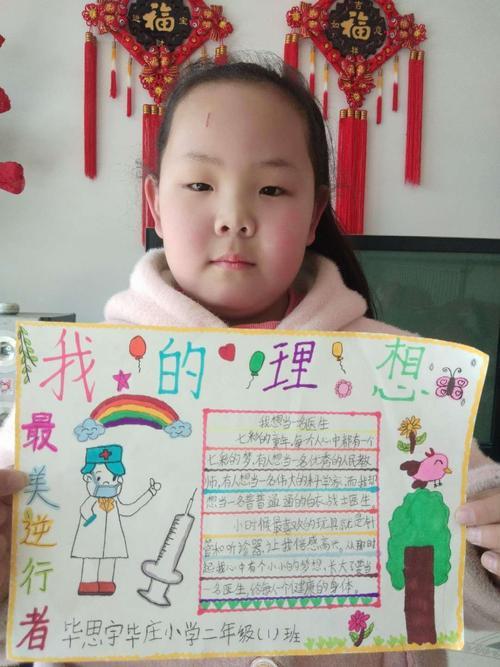 福
福
我的理想
最美逆行者
我想当一名医生
七彩的童年,每个人心中都有一个
七彩的梦,有人想当一名优秀的人民教
师,有人想当一名伟大的科学家,而我却
想当一名普普通通的白衣战士医生
小时候最喜欢的玩具就是针
管和听诊器,让我倍感高大,从那时
起我心中有个小小的梦想,长大了要当
一名医生,给每一个健康的身体.
毕思宇毕庄小学二年级(1)班